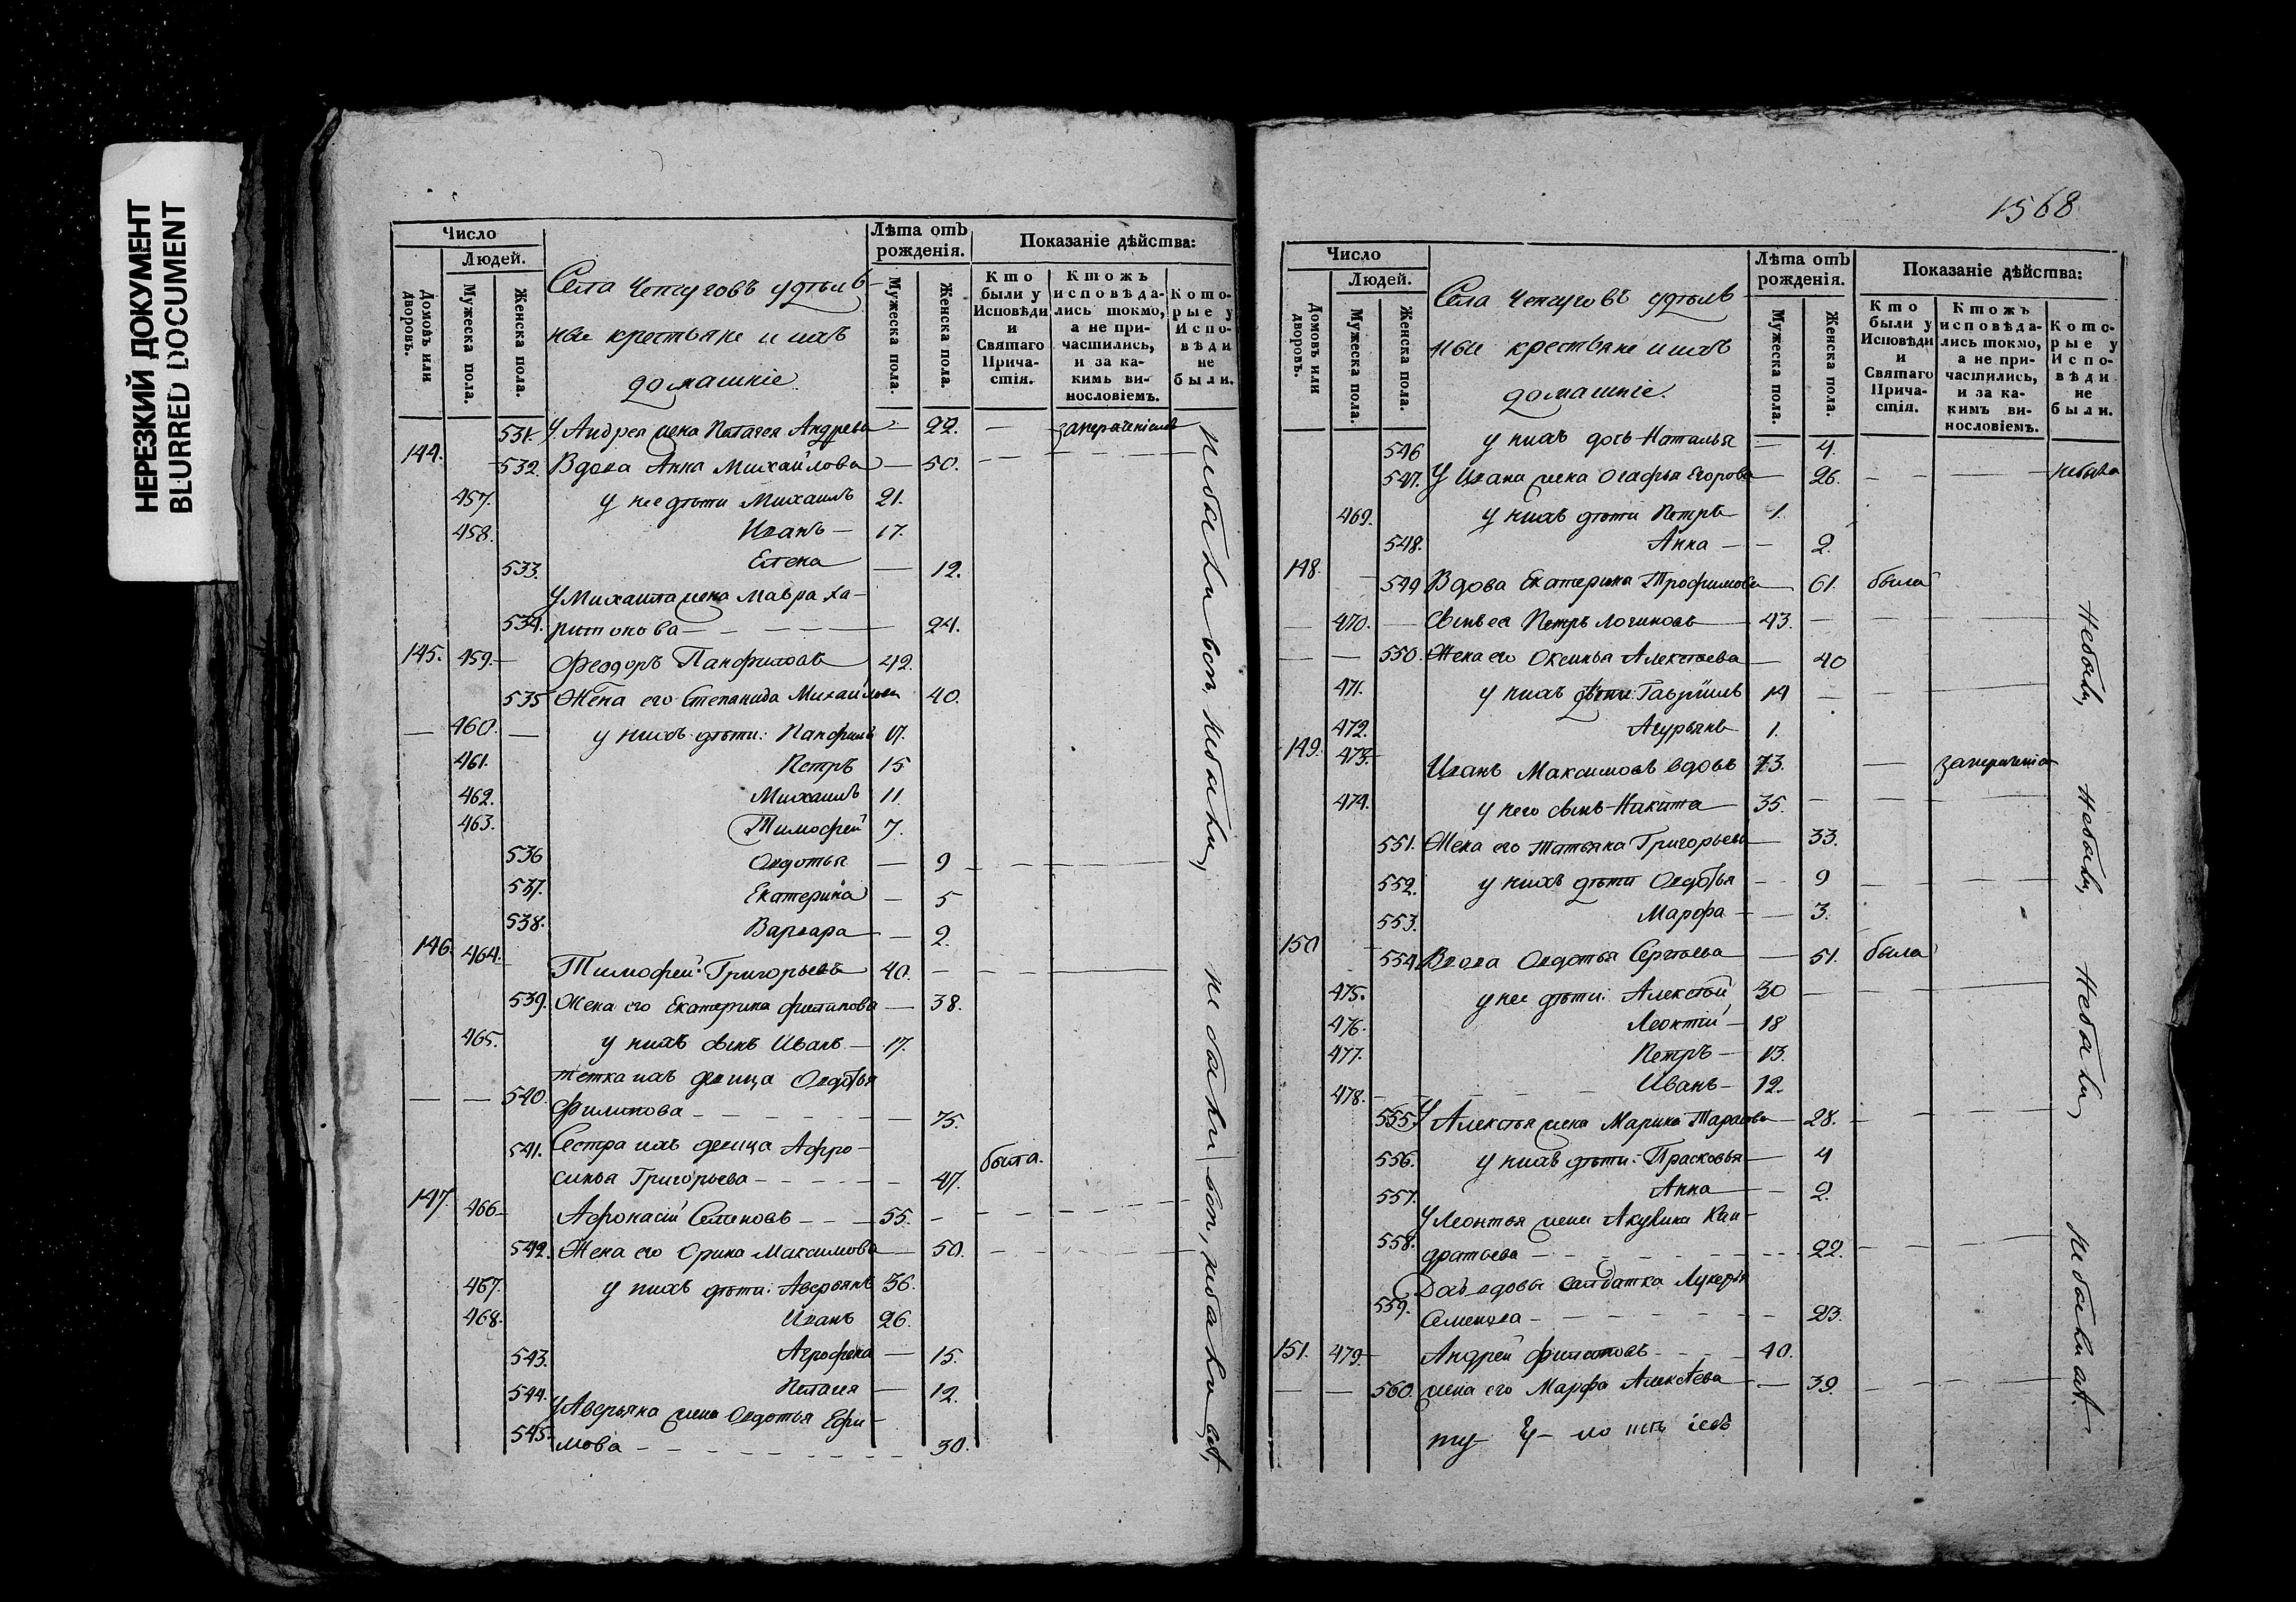 НЕРЕЗКИЙ ДОКУМЕНТ
BLURRED DOCUMENT
Число
Людей.
Домовъ или дворовъ.
Мужеска пола.
Женска пола.
Села Чепуговъ удѣль-
ные крестьяне и ихъ
домашніе.
Лѣта отъ рожденія.
Мужеска пола.
Женска пола.
Показаніе дѣйства:
Кто были у Исповѣди и Святаго Причастія.
Ктожъ исповѣдались токмо, а не причастились, и за какимъ винословіемъ.
Которые у Исповѣди не были.
531. У Андрея жена Пелагея Андреева — 22. —
144. 532. Вдова Анна Михайлова — 50.
457. у нее дѣти Михаилъ 21.
458. Иванъ — 17.
533. Елена — 12.
У Михаила жена Мавра Ха-
534. ритонова — 24.
145. 459. Феодоръ Панфиловъ 42.
535 Жена его Степанида Михайлова 40.
460. у нихъ дѣти: Панфилъ 17.
461. Петръ 15
462. Михаилъ 11
463. Тимофей 7.
536 Овдотья — 9
537. Екатерина — 5
538. Варвара — 2.
146. 464. Тимофей Григорьевъ 40. —
539. Жена его Екатерина Филипова — 38.
465. у нихъ сынъ Иванъ — 17.
тетка ихъ девица Овдотья
540. Филипова — 75.
541. Сестра ихъ девица Афро-
синья Григорьева — 47. была.
147. 466 Афонасій Семеновъ — 55. —
542. Жена его Орина Максимова — 50.
467. у нихъ дѣти: Аверьянъ 36.
468. Иванъ 26.
543. Агрофена — 15.
544. Пелагея — 12.
У Аверьяна жена Овдотья Ефи-
545. мова — 30.
1568
Число
Людей.
Домовъ или дворовъ.
Мужеска пола.
Женска пола.
Села Чепуговъ удѣль-
ные крестьяне и ихъ
домашніе.
Лѣта отъ рожденія.
Мужеска пола.
Женска пола.
Показаніе дѣйства:
Кто были у Исповѣди и Святаго Причастія.
Ктожъ исповѣдались токмо, а не причастились, и за какимъ винословіемъ.
Которые у Исповѣди не были.
546 у нихъ дочь Наталья — 4.
547. У Ивана жена Огафья Егорова — 26. небыла
469. у нихъ дѣти Петръ 1.
548. Анна — 2.
148. 549 Вдова Екатерина Трофимова — 61. была
470. Сынъ ея Петръ Логиновъ 43. —
550. Жена его Оксинья Алексѣева — 40
471. у нихъ дѣти: Гавріилъ 14 —
472. Агурьянъ 1.
149. 473. Иванъ Максимовъ вдовъ 73. —
474. у него сынъ Никита 35.
551. Жена его Татьяна Григорьева — 33.
552. у нихъ дѣти Овдотья — 9
553. Марфа — 3.
150 554 Вдова Овдотья Сергѣева — 51. была
475. у нее дѣти: Алексѣй 30
476. Леонтій — 18
477. Петръ — 13.
478. Иванъ — 12.
555. У Алексѣя жена Марина Тарасова — 28.
556. у нихъ дѣти: Прасковья — 4
557. Анна — 2.
У Леонтья жена Акулина Кан-
558. дратьева — 22.
559. Семенова — 23.
151. 479. Андрей Филиповъ 40.
560. жена его Марфа Алексѣева — 39.
Небыли, Небыли, Небыли,